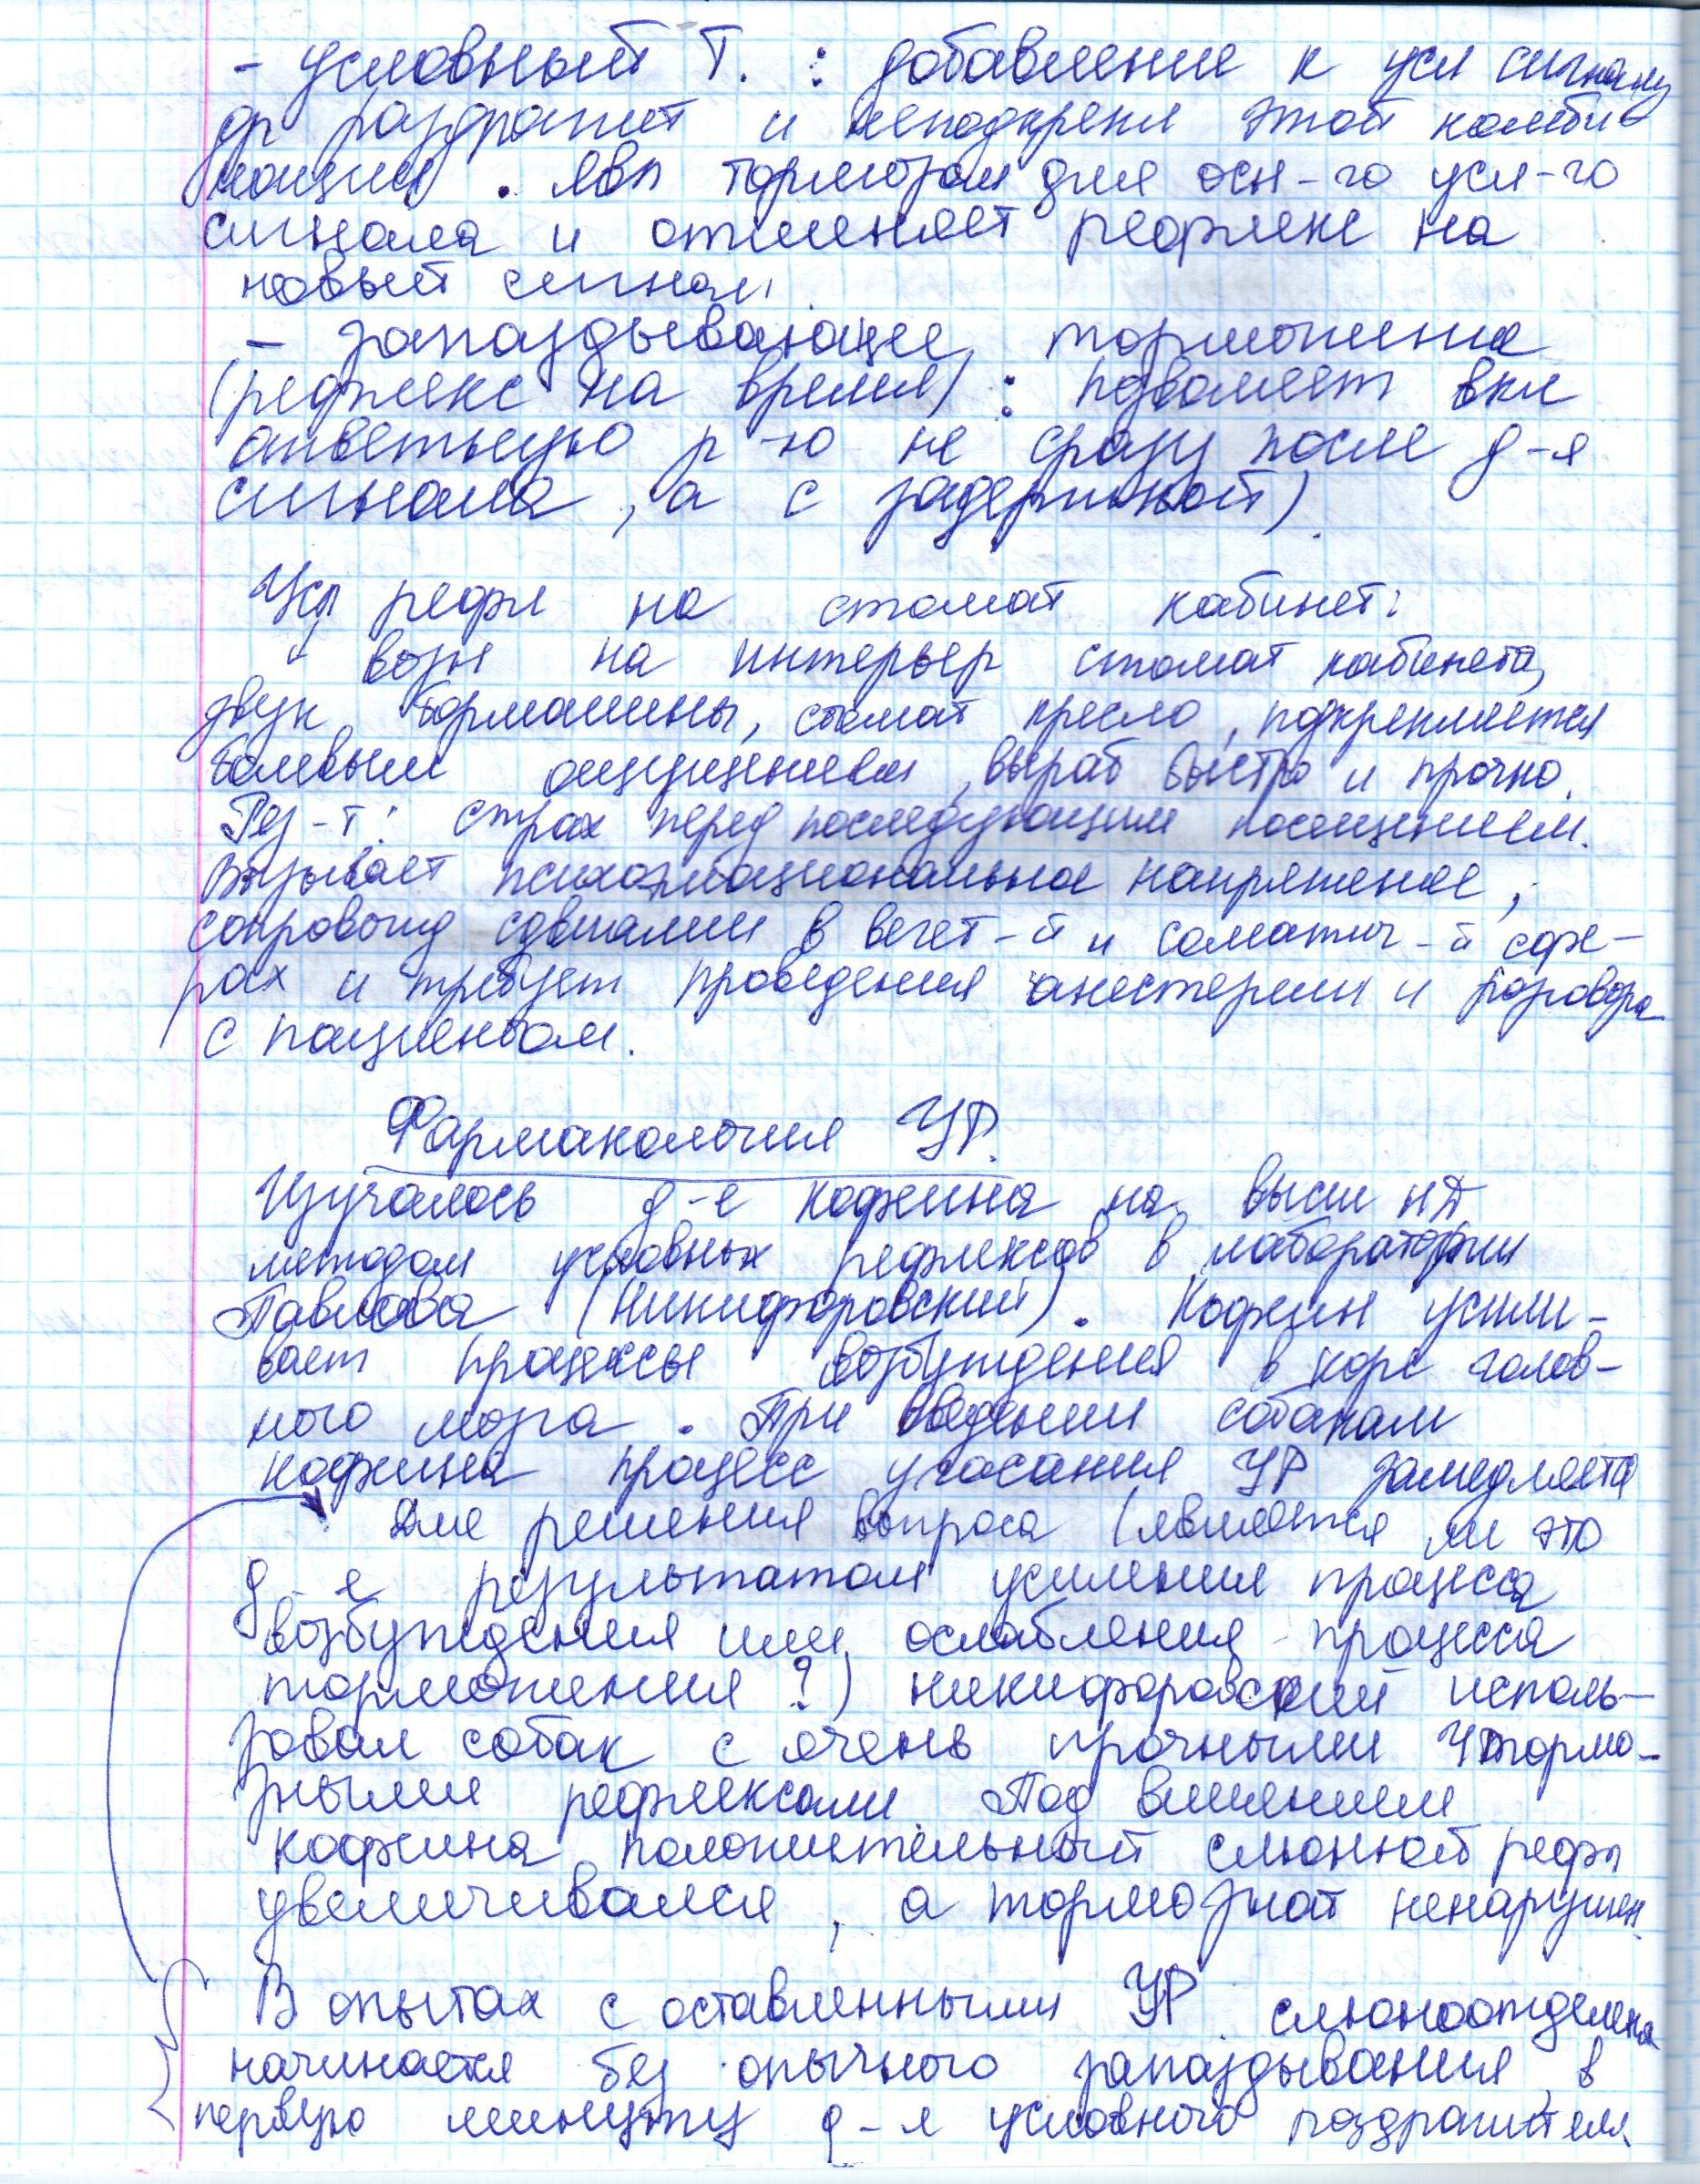 - условный Т. : добавление к усл сигналу
др раздражит и неподкрепл этой комби-
нации . явл тормозом для осн-го усл-го
сигнала и отменяет рефлекс на
новый сигнал.
- запаздывающее торможение
(рефлекс на время) : позволяет вкл
ответную р-ю не сразу после д-я
сигнала , а с задержкой)
Усл рефл на стомат кабинет:
↓ возн на интерьер стомат кабинета,
звук бормашины, стомат кресло , подкрепляется
болевым ощущением , выраб быстро и прочно.
Рез-т: страх перед последующим посещением.
Вызывает психоэмоциональное напряжение ,
сопровожд сдвигами в вегет-й и соматич-й сфе-
рах и требует проведения анестезии и разговора
с пациентом.
Фармакология УР.
Изучалось д-е кофеина на высш НД
методом условных рефлексов в лаборатории
Павлова (Никифоровский) . Кофеин усили-
вает процессы возбуждения в коре голов-
ного мозга . При введении собакам
кофеина процесс угасания УР замедляется
Для решения вопроса (является ли это
д-е результатом усиления процесса
возбуждения или ослабления процесса
торможения ?) Никифоровский исполь-
зовал собак с очень прочными тормо-
зными рефлексами. Под влиянием
кофеина положительный слюнной рефл
увеличивался , а тормозной ненарушен.
В опытах с оставленными УР слюноотделение
начинается без опычного запаздывания , в
первую минуту д-я условного раздражителя